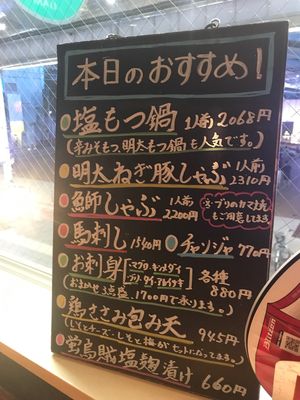 本日のおすすめ!
塩もつ鍋 1人前 2068円
(辛みそもつ、明太もつ鍋も人気です。)
明太ねぎ豚しゃぶ 1人前 2310円
漁師しゃぶ 1人前 2200円
ブリのカマ焼
もご用意してます
馬刺し 1540円
チャンジャ 770円
お刺身 マグロ・キンメダイ
ブリ・ 各種 880円
(おまかせ3点盛 1700円で承ります。)
鶏ささみ包み天 945円
(しそとチーズ・しそと梅がセットになってます。)
蛍烏賊塩麹漬け 660円